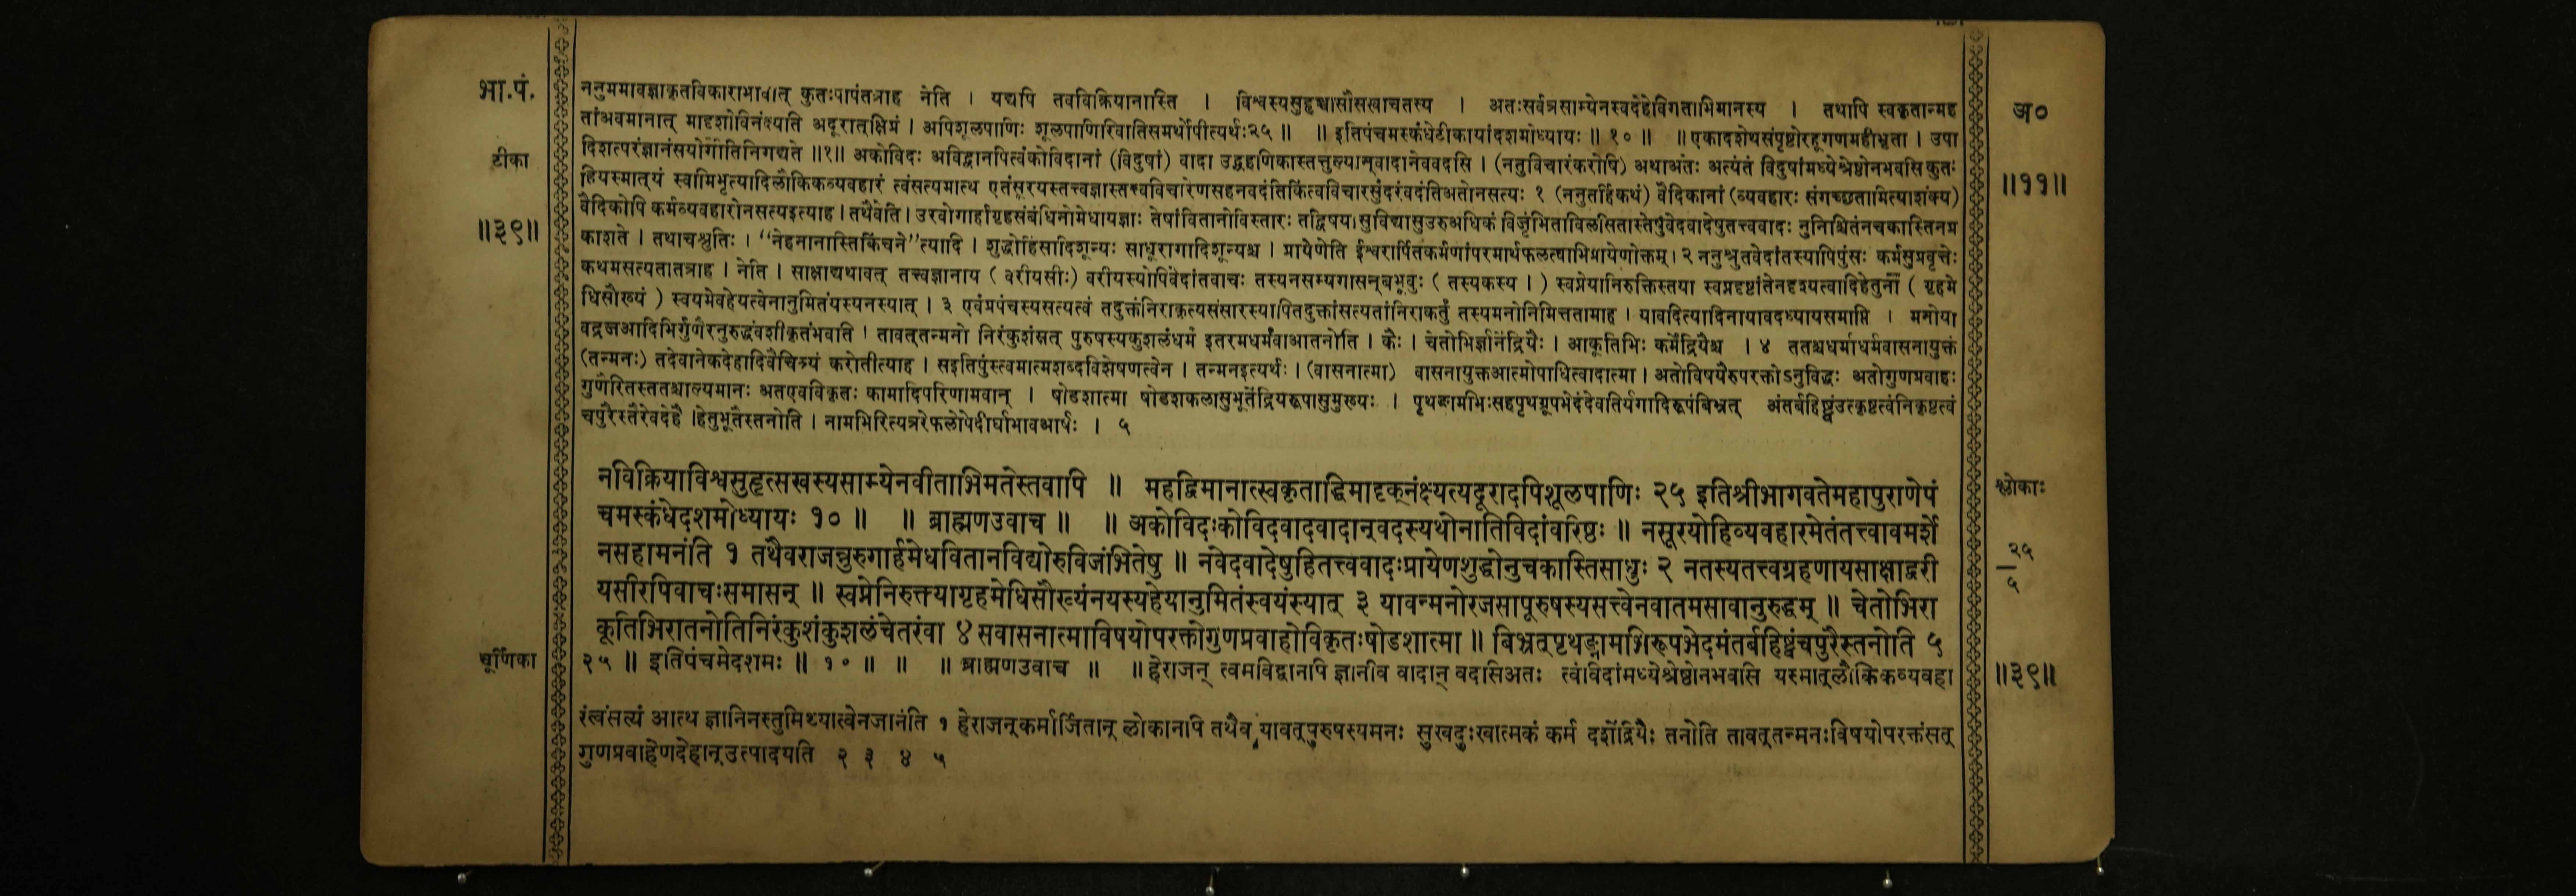 भा.पं.
टीका
॥३९॥
ननुममावज्ञाकृतविकाराभावात् कुतःपापंतत्राह नेति । यद्यपि तवविक्रियानास्ति । विश्वस्यसुहृच्चासौसखाचतस्य । अतःसर्वत्रसाम्येनस्वदेहेविगताभिमानस्य । तथापि स्वकृतान्मह
तांअवमानात् मादृशोविनंक्ष्यति अदूरात्क्षिप्रं । अपिशूलपाणिः शूलपाणिरिवातिसमर्थोपीत्यर्थः२५ ॥ ॥ इतिपंचमस्कंधेटीकायांदशमोध्यायः ॥ १० ॥ ॥ एकादशेथसंपृष्टोरहूगणमहीभृता । उपा
दिशत्परंज्ञानंसयोगीतिनिगद्यते ॥१॥ अकोविदः अविद्वानपित्वंकोविदानां (विदुषां) वादा उद्ग्रहणिकास्तत्तुल्यान्वादानेववदसि । (नतुविचारंकरोषि) अथाअतः अत्यंतं विदुषांमध्येश्रेष्ठोनभवसि कुतः
हियस्मात्यं स्वामिभृत्यादिलौकिकव्यवहारं त्वंसत्यमात्थ एतंसूरयस्तत्त्वज्ञास्तत्त्वविचारेणसहनवदंतिकिंत्वविचारसुंदरंवदंतिअतोनसत्यः १ (ननुतर्हिकथं) वैदिकानां (व्यवहारः संगच्छतामित्याशंक्य)
वैदिकोपि कर्मव्यवहारोनसत्यइत्याह । तथैवेति । उरवोगार्हागृहसंबंधिनोमेधायज्ञाः तेषांवितानोविस्तारः तद्विषया सुविद्यासुउरुअधिकं विजृंभिताविलसितास्तेषुवेदवादेषुतत्त्ववादः नुनिश्चितंनचकास्तिनप्र
काशते । तथाचश्रुतिः । “नेहनानास्तिकिंचने”त्यादि । शुद्धोहिंसादिशून्यः साधूरागादिशून्यश्च । प्रायेणेति ईश्वरार्पितकर्मणांपरमार्थफलत्वाभिप्रायेणोक्तम् । २ ननुश्रुतवेदांतस्यापिपुंसः कर्मसुप्रवृत्तेः
कथमसत्यतातत्राह । नेति । साक्षाद्यथावत् तत्त्वज्ञानाय ( वरीयसीः) वरीयस्योपिवेदांतवाचः तस्यनसम्यगासन्बभूवुः ( तस्यकस्य । ) स्वप्नेयानिरुक्तिस्तया स्वप्नदृष्टांतेनदृश्यत्वादिहेतुना ( गृहमे
धिसौख्यं ) स्वयमेवहेयत्वेनानुमितंयस्यनस्यात् । ३ एवंप्रपंचस्यसत्यत्वं तदुक्तंनिराकृत्यसंसारस्यापितदुक्तांसत्यतांनिराकर्तुं तस्यमनोनिमित्ततामाह । यावदित्यादिनायावदध्यायसमाप्ति । मनोया
वद्रजआदिभिर्गुणैरनुरुद्धंवशीकृतंभवति । तावत्तन्मनो निरंकुशंसत् पुरुषस्यकुशलंधर्मं इतरमधर्मंवाआतनोति । कैः । चेतोभिर्ज्ञानेंद्रियैः । आकूतिभिः कर्मेंद्रियैश्च । ४ ततश्चधर्माधर्मवासनायुक्तं
(तन्मनः) तदेवानेकदेहादिवैचित्र्यं करोतीत्याह । सइतिपुंस्त्वमात्मशब्दविशेषणत्वेन । तन्मनइत्यर्थः । (वासनात्मा) वासनायुक्तआत्मोपाधित्वादात्मा । अतोविषयैरुपरक्तोऽनुविद्धः अतोगुणप्रवाहः
गुणैरितस्ततश्चाल्यमानः अतएवविकृतः कामादिपरिणामवान् । षोडशात्मा षोडशकलासुभूतेंद्रियरूपासुमुख्यः । पृथङ्नामभिःसहपृथग्रूपभेदंदेवतिर्यगादिरूपंबिभ्रत् अंतर्बहिष्ट्वंउत्कृष्टत्वंनिकृष्टत्वं
चपुरैस्तैरेवदेहै र्हेतुभूतैस्तनोति । नामभिरित्यत्ररेफलोपेदीर्घाभावआर्षः । ५
नविक्रियाविश्वसुहृत्सखस्यसाम्येनवीताभिमतेस्तवापि ॥ महद्विमानात्स्वकृताद्धिमादृक्नंक्ष्यत्यदूरादपिशूलपाणिः २५ इतिश्रीभागवतेमहापुराणेपं
चमस्कंधेदशमोध्यायः १० ॥ ॥ ब्राह्मणउवाच ॥ ॥ अकोविदःकोविदवादवादान्वदस्यथोनातिविदांवरिष्ठः ॥ नसूरयोहिव्यवहारमेतंतत्त्वावमर्शे
नसहामनंति १ तथैवराजन्नुरुगार्हमेधवितानविद्योरुविजृंभितेषु ॥ नवेदवादेषुहितत्त्ववादःप्रायेणशुद्धोनुचकास्तिसाधुः २ नतस्यतत्त्वग्रहणायसाक्षाद्वरी
यसीरपिवाचःसमासन् ॥ स्वप्नेनिरुक्त्यागृहमेधिसौख्यंनयस्यहेयानुमितंस्वयंस्यात् ३ यावन्मनोरजसापूरुषस्यसत्त्वेनवातमसावानुरुद्धम् ॥ चेतोभिरा
कूतिभिरातनोतिनिरंकुशंकुशलंचेतरंवा ४ सवासनात्माविषयोपरक्तोगुणप्रवाहोविकृतःषोडशात्मा ॥ बिभ्रत्पृथङ्नामभिरूपभेदमंतर्बहिष्ट्वंचपुरैस्तनोति ५
चूर्णिका
२५ ॥ इतिपंचमेदशमः ॥ १० ॥ ॥ ॥ ब्राह्मणउवाच ॥ ॥ हेराजन् त्वमविद्वानपि ज्ञानीव वादान् वदसिअतः त्वंविदांमध्येश्रेष्ठोनभवसि यस्मात्लौकिकव्यवहा
रंत्वंसत्यं आत्थ ज्ञानिनस्तुमिथ्यात्वेनजानंति १ हेराजन्कर्मार्जितान् लोकानपि तथैव यावत्पुरुषस्यमनः सुखदुःखात्मकं कर्म दशेंद्रियैः तनोति तावत्तन्मनःविषयोपरक्तंसत्
गुणप्रवाहेणदेहान्उत्पादयति २ ३ ४ ५
अ०
॥११॥
श्लोकाः
२५
५
॥३९॥